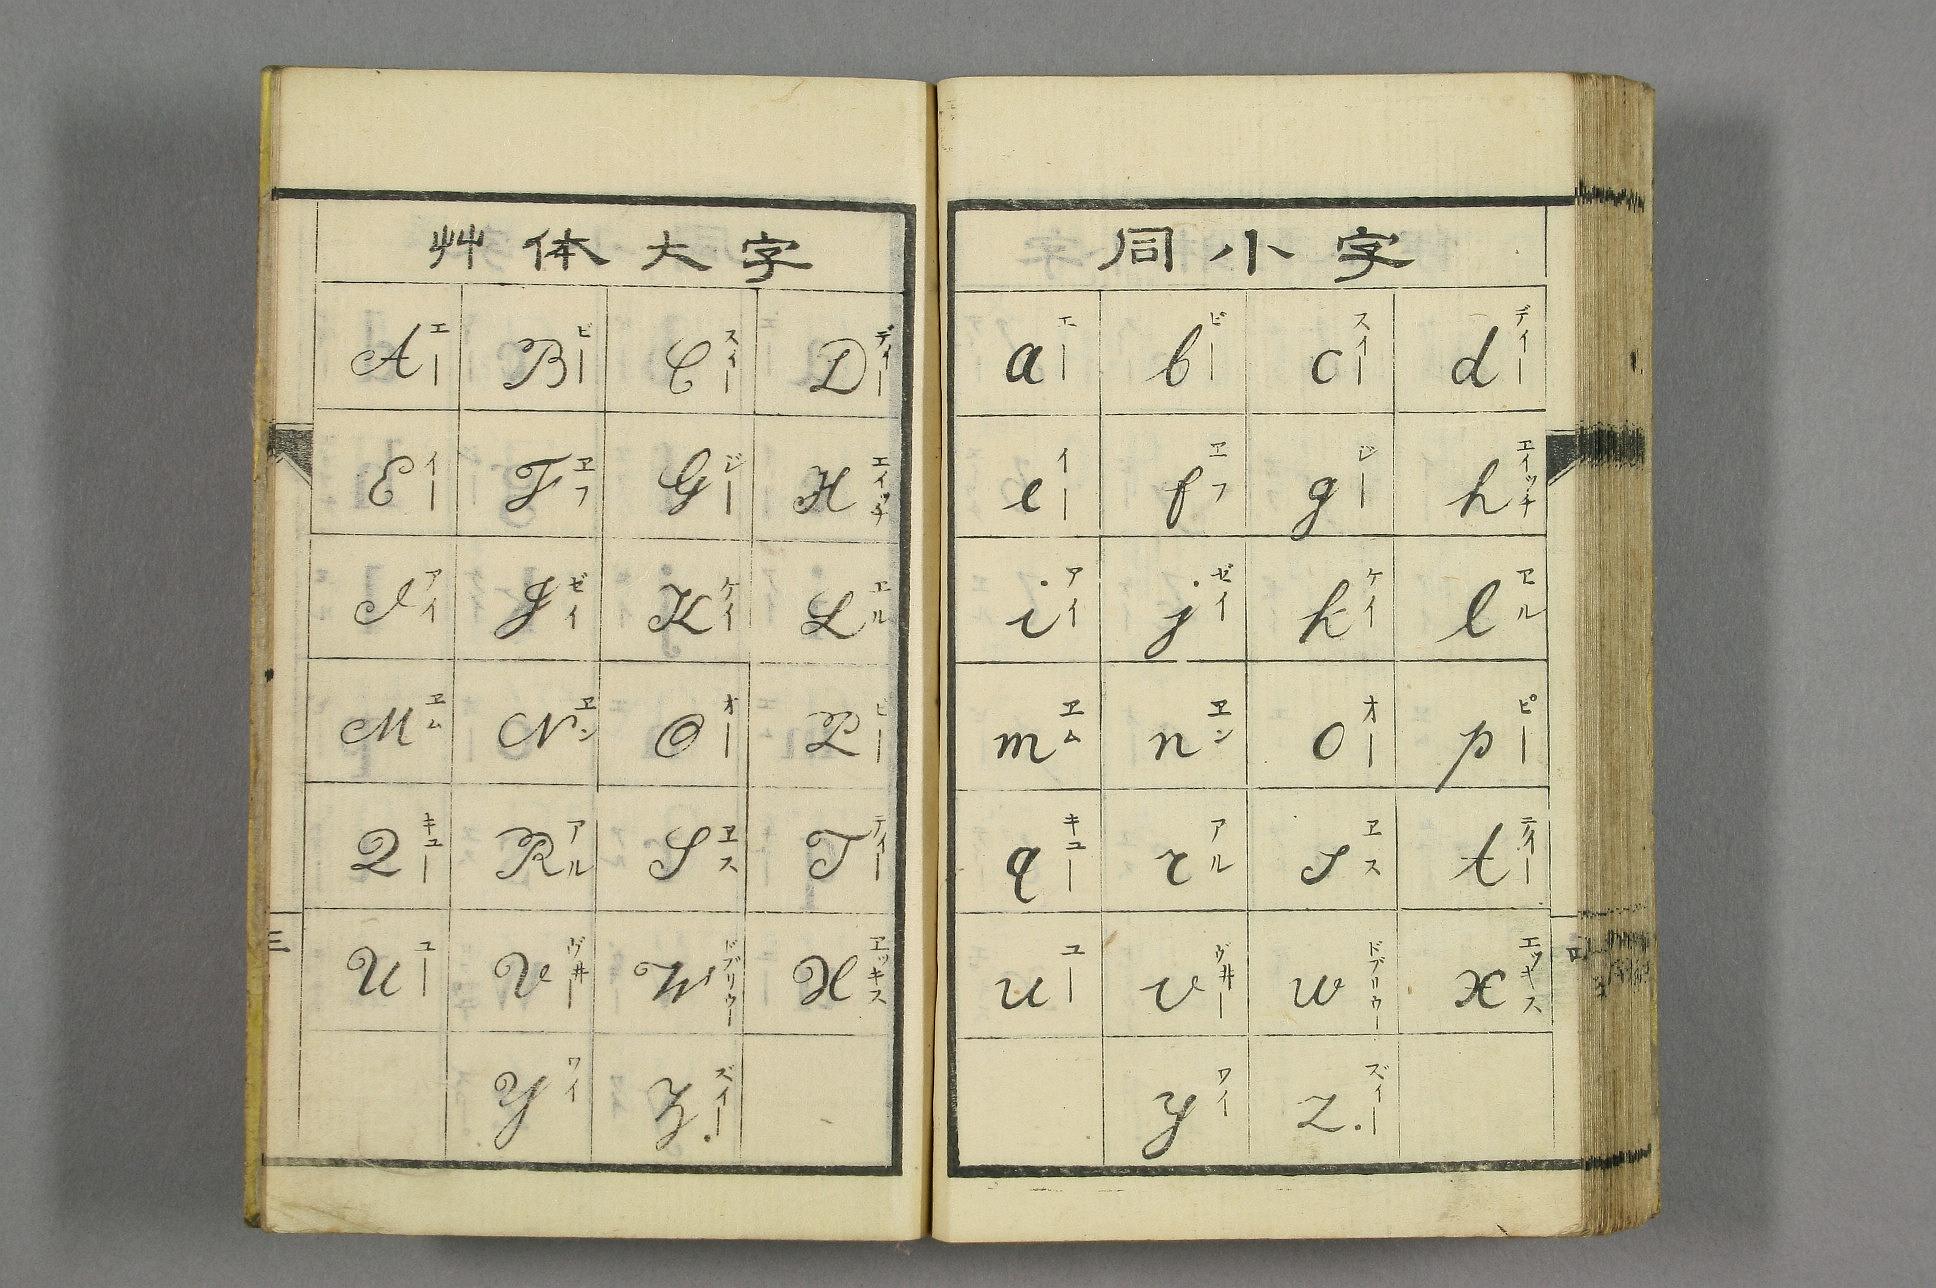 艸体大字
A エー B ビー C スイー D デイー
E イー F ヱフ G ジー H エイッチ
I アイ J ゼイ K ケイ L エル
M ヱム N ヱン O オー P ピー
Q キユー R アル S ヱス T テイー
U ユー V ヴ井ー W ドブリウー X ヱッキス
Y ワイ Z. ズイー
三
同小字
a エー b ビー c スイー d デイー
e イー f ヱフ g ジー h エイッチ
i アイ j ゼイ k ケイ l ヱル
m ヱム n ヱン o オー p ピー
q キユー r アル s ヱス t テイー
u ユー v ヴ井ー w ドブリウー x エッキス
y ワイ z. ズイー